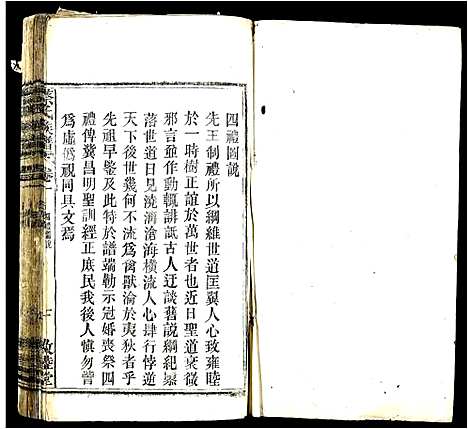 四禮圖說
先王制禮所以綱維世道匡翼人心致雍睦
於一時樹正誼於萬世者也近日聖道衰微
邪言並作動輒誹詆古人迂談舊說綱紀
蕩世道日見澆漓滄海橫流人心肆行悖逆
天下後世幾何不流為禽獸淪於夷狄者乎
先祖早鑒及此特於譜端勒示冠婚喪祭四
禮俾冀昌明聖訓經正庶民我後人慎勿嘗
爲虛僞視同具文焉
敦睦堂